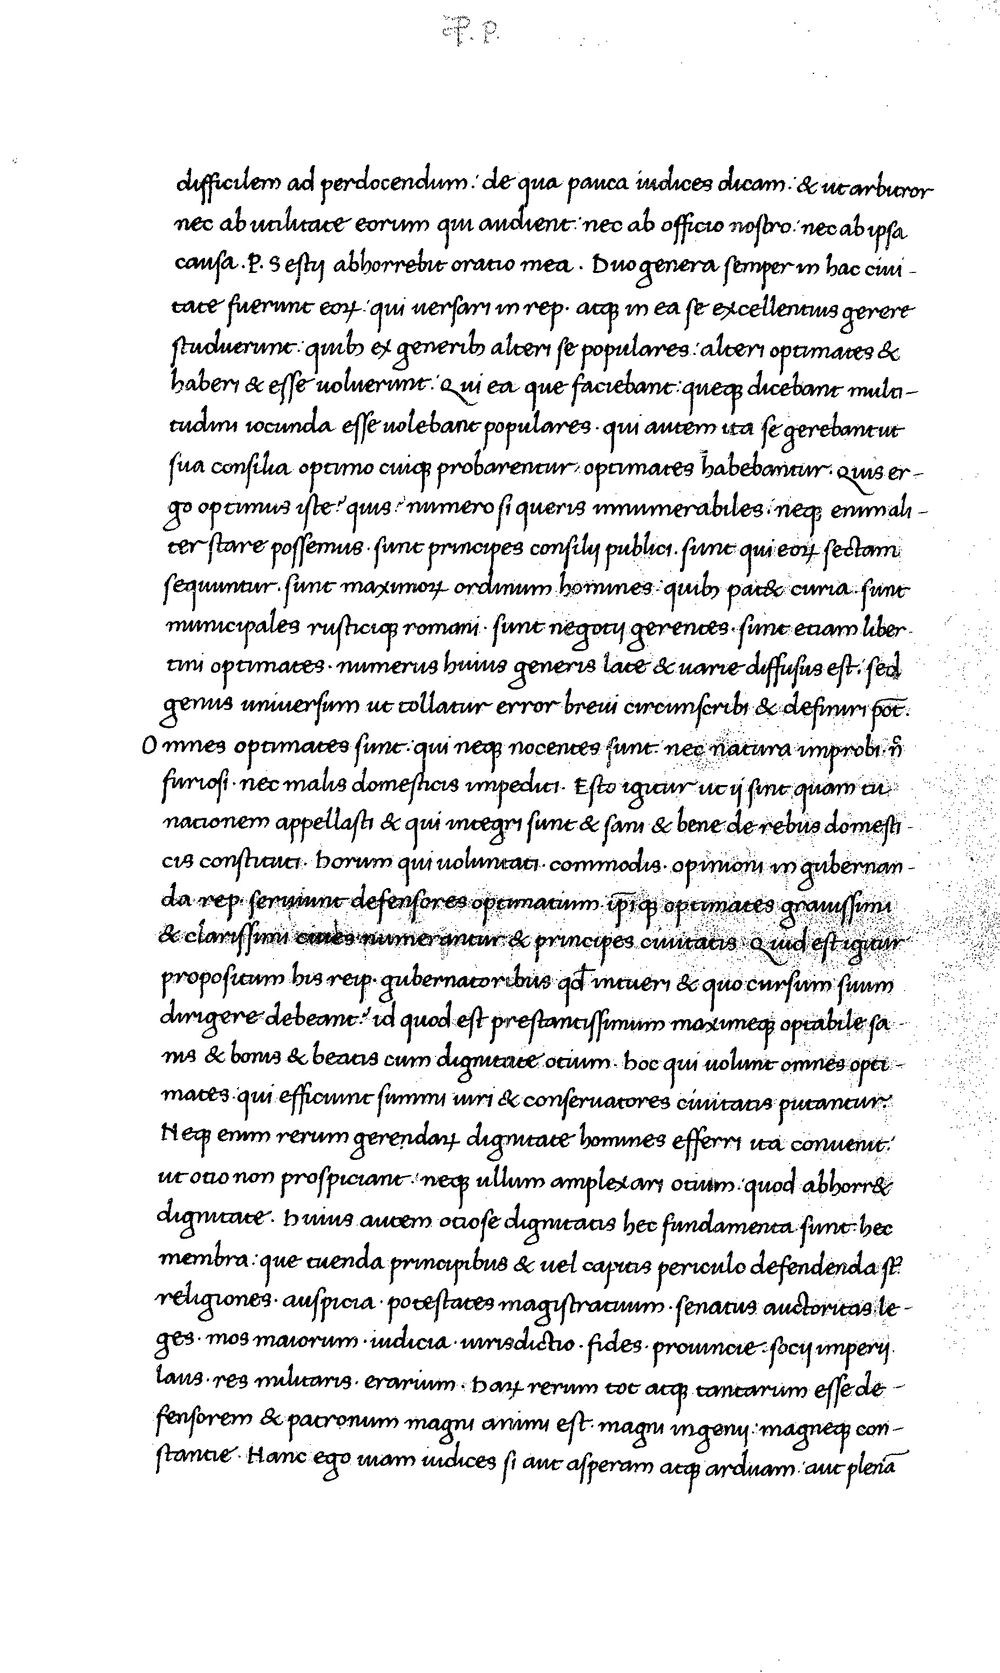 difficilem ad perdocendum: de qua pauca iudices dicam: & ut arbitror
nec ab utilitate eorum qui audient: nec ab officio nostro: nec ab ipsa
causa. P. Sestij abhorrebit oratio mea. Duo genera semper in hac ciui-
tate fuerunt eoꝝ: qui uersari in rep. atqꝫ in ea se excellentius gerere
studuerunt: quibꝫ ex generibꝫ alteri se populares: alteri optimates &
haberi & esse uoluerunt. Qui ea que faciebant: queqꝫ dicebant multi-
tudini iocunda esse uolebant populares. qui autem ita se gerebant ut
sua consilia optimo cuiqꝫ probarentur: optimates habebantur. Quis er-
go optimus iste? quis? numero si queris innumerabiles: neqꝫ enim ali-
ter stare possemus. sunt principes consilij publici. sunt qui eoꝝ sectam
sequuntur. sunt maximoꝝ ordinum homines: quibꝫ pat& curia. sunt
municipales rusticiqꝫ romani. sunt negotij gerentes. sunt etiam liber-
tini optimates. numerus huius generis late & uarie diffusus est: sed
genus uniuersum ut tollatur error breui circunscribi & definiri pōt.
Omnes optimates sunt: qui neqꝫ nocentes sunt. nec natura improbi. n̄
furiosi. nec malis domesticis impediti. Esto igitur ut ij sint quam tu
nationem appellasti & qui integri sunt & sani & bene de rebus domesti-
cis constituti. Horum qui uoluntati. commodis. opinioni in gubernan-
da rep. seruiunt defensores optimatium ip̄iqꝫ optimates grauissimi
& clarissimi ciues numerantur & principes ciuitatis. Quid est igitur
propositum his reip. gubernatoribus qđ intueri & quo cursum suum
dirigere debeant? id quod est prestantissimum maximeqꝫ optabile sa-
nis & bonis & beatis cum dignitate otium. Hoc qui uolunt omnes opti-
mates. qui efficiunt summi uiri & conseruatores ciuitatis putantur.
Neqꝫ enim rerum gerendaꝝ dignitate homines efferri ita conuenit:
ut otio non prospiciant: neqꝫ ullum amplexari otium: quod abhorr&
dignitate. Huius autem otiose dignitatis hec fundamenta sunt: hec
membra: que tuenda principibus & uel capitis periculo defendenda sт̄.
religiones. auspicia. potestates magistratuum. senatus auctoritas. le-
ges. mos maiorum. iudicia. iurisdictio. fides. prouincie. socij imperij.
laus. res militaris. erarium. Haꝝ rerum tot atqꝫ tantarum esse de-
fensorem & patronum magni animi est. magni ingenij: magneqꝫ con-
stantie. Hanc ego uiam iudices si aut asperam atqꝫ arduam: aut plenā